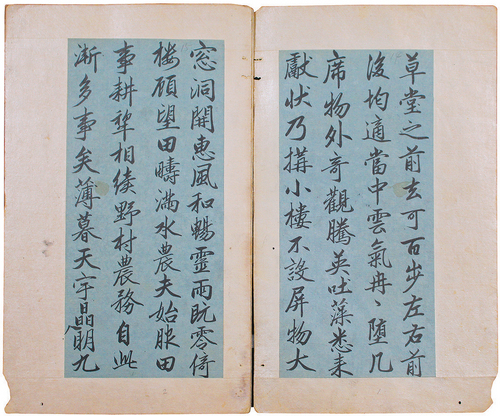 草堂之前去可百步左右前
後均適當中雲氣冉〻墮几
席物外奇觀騰英吐藻悉来
獻状乃搆小樓不設屏物大
窓洞開惠風和暢靈雨既零倚
楼顾望田疇满水農夫始服田
事耕犂相續野村農務自此
漸多事矣薄暮天宇晶明九